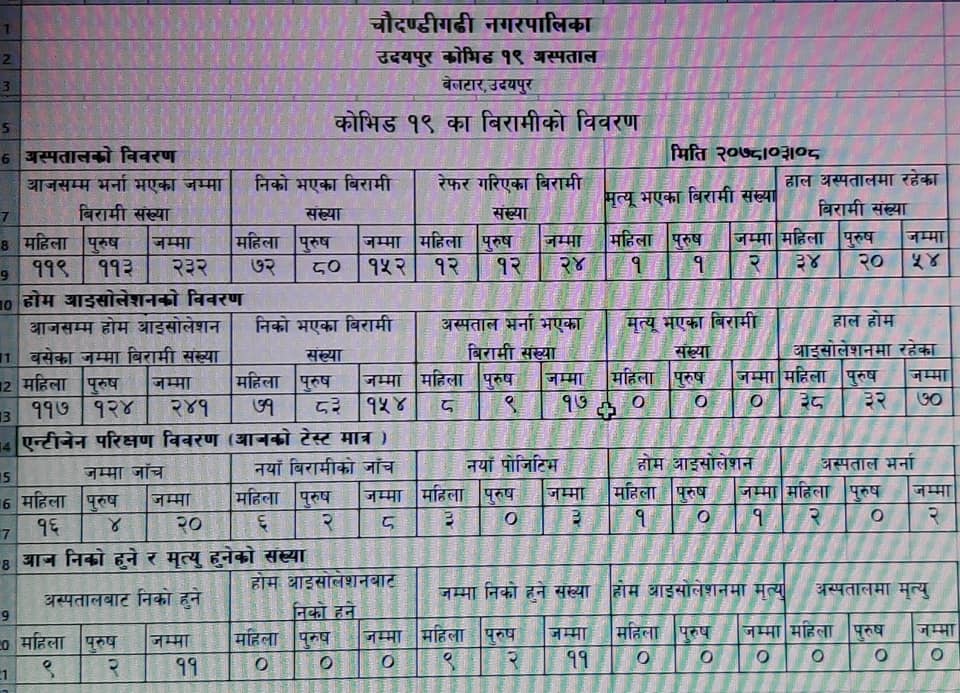 1 चौदण्डीगढी नगरपालिका
2 उदयपुर कोभिड १९ अस्पताल
3 बेलटार,उदयपुर
5 कोभिड १९ का बिरामीको विवरण
6 अस्पतालको विवरण मिति २०७८।०३।०८
आजसम्म भर्ना भएका जम्मा निको भएका बिरामी रेफर गरिएका बिरामी मृत्यू भएका बिरामी संख्या हाल अस्पतालमा रहेका
7 बिरामी संख्या संख्या संख्या बिरामी संख्या
8 महिला पुरुष जम्मा महिला पुरुष जम्मा महिला पुरुष जम्मा महिला पुरुष जम्मा महिला पुरुष जम्मा
9 ११९ ११३ २३२ ७२ ८० १५२ १२ १२ २४ १ १ २ ३४ २० ५४
10 होम आइसोलेशनको विवरण
आजसम्म होम आइसोलेशन निको भएका बिरामी अस्पताल भर्ना भएका मृत्यू भएका बिरामी हाल होम
11 बसेका जम्मा बिरामी संख्या संख्या बिरामी संख्या संख्या आइसोलेशनमा रहेका
12 महिला पुरुष जम्मा महिला पुरुष जम्मा महिला पुरुष जम्मा महिला पुरुष जम्मा महिला पुरुष जम्मा
13 ११७ १२४ २४१ ७१ ८३ १५४ ८ ९ १७ ० ० ० ३८ ३२ ७०
14 एन्टीजेन परिक्षण विवरण (आजको टेस्ट मात्र )
15 जम्मा जाँच नयाँ बिरामीको जाँच नयाँ पोजिटिभ होम आइसोलेशन अस्पताल भर्ना
16 महिला पुरुष जम्मा महिला पुरुष जम्मा महिला पुरुष जम्मा महिला पुरुष जम्मा महिला पुरुष जम्मा
17 १६ ४ २० ६ २ ८ ३ ० ३ १ ० १ २ ० २
18 आज निको हुने र मृत्यु हुनेको संख्या
19 अस्पतालबाट निको हुने होम आइसोलेशनबाट निको हुने जम्मा निको हुने संख्या होम आइसोलेशनमा मृत्यु अस्पतालमा मृत्यु
20 महिला पुरुष जम्मा महिला पुरुष जम्मा महिला पुरुष जम्मा महिला पुरुष जम्मा महिला पुरुष जम्मा
21 ९ २ ११ ० ० ० ९ २ ११ ० ० ० ० ० ०